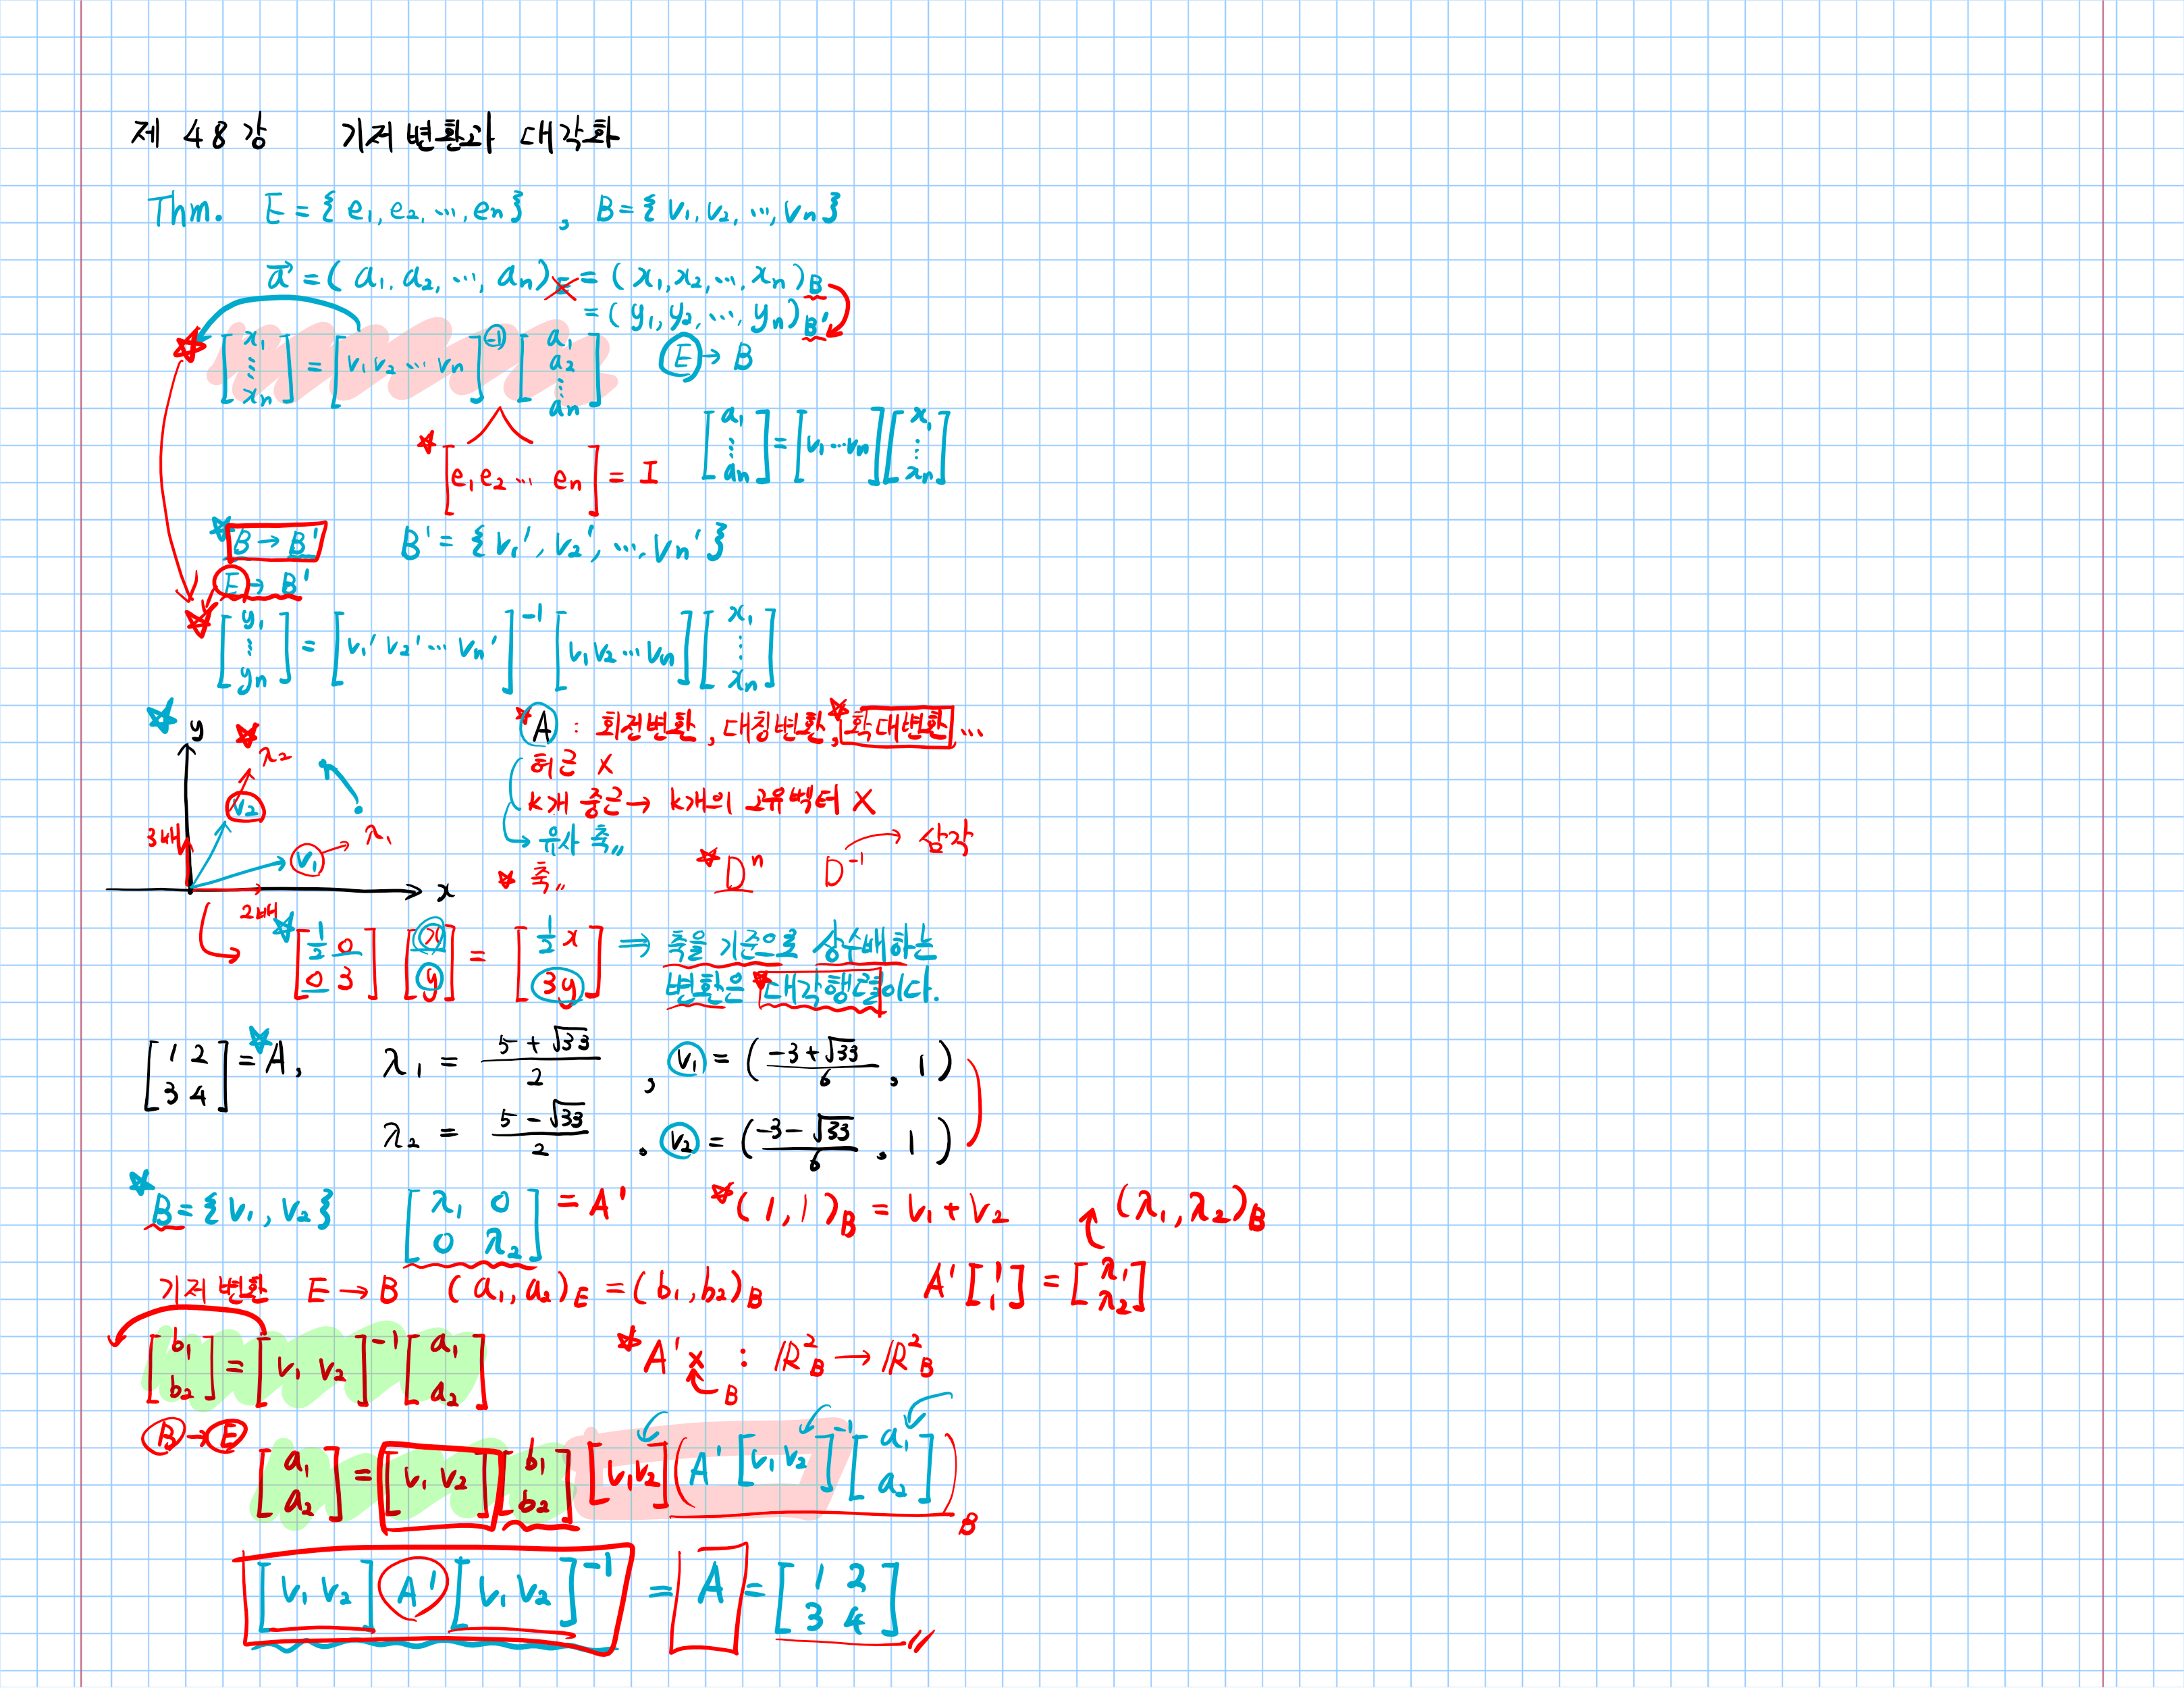 제 48강 기저변환과 대각화
Thm. E = { e₁, e₂, ⋯, eₙ } , B = { v₁, v₂, ⋯, vₙ }
a⃗ = ( a₁, a₂, ⋯, aₙ )_E = ( x₁, x₂, ⋯, xₙ )_B
= ( y₁, y₂, ⋯, yₙ )_B'
[x₁ ⋮ xₙ] = [v₁ v₂ ⋯ vₙ]⁻¹ [a₁ a₂ ⋮ aₙ] E → B
[e₁ e₂ ⋯ eₙ] = I [a₁ ⋮ aₙ] = [v₁ ⋯ vₙ] [x₁ ⋮ xₙ]
B → B' B' = { v₁', v₂', ⋯, vₙ' }
E → B'
[y₁ ⋮ yₙ] = [v₁' v₂' ⋯ vₙ']⁻¹ [v₁ v₂ ⋯ vₙ] [x₁ ⋮ xₙ]
y λ₂ v₂ 3배 v₁ λ₁ x 2배
A : 회전변환, 대칭변환, 확대변환, ⋯
허근 X
k개 중근 → k개의 고유벡터 X
→ 유사 축〃
축〃 Dⁿ D⁻¹ → 삼각
[½ 0; 0 3] [x; y] = [½x; 3y] ⇒ 축을 기준으로 상수배하는
변환은 대각행렬이다.
[1 2; 3 4] = A, λ₁ = (5 + √33)/2 , v₁ = ( (-3 + √33)/6 , 1 )
λ₂ = (5 - √33)/2 , v₂ = ( (-3 - √33)/6 , 1 )
B = { v₁, v₂ } [λ₁ 0; 0 λ₂] = A' (1, 1)_B = v₁ + v₂ (λ₁, λ₂)_B
기저 변환 E → B (a₁, a₂)_E = (b₁, b₂)_B A' [1; 1] = [λ₁; λ₂]
[b₁; b₂] = [v₁ v₂]⁻¹ [a₁; a₂] A'x : ℝ²_B → ℝ²_B
B
B → E
[a₁; a₂] = [v₁ v₂] [b₁; b₂] [v₁ v₂] ( A' [v₁ v₂]⁻¹ [a₁; a₂] )_B
[v₁ v₂] A' [v₁ v₂]⁻¹ = A = [1 2; 3 4]〃